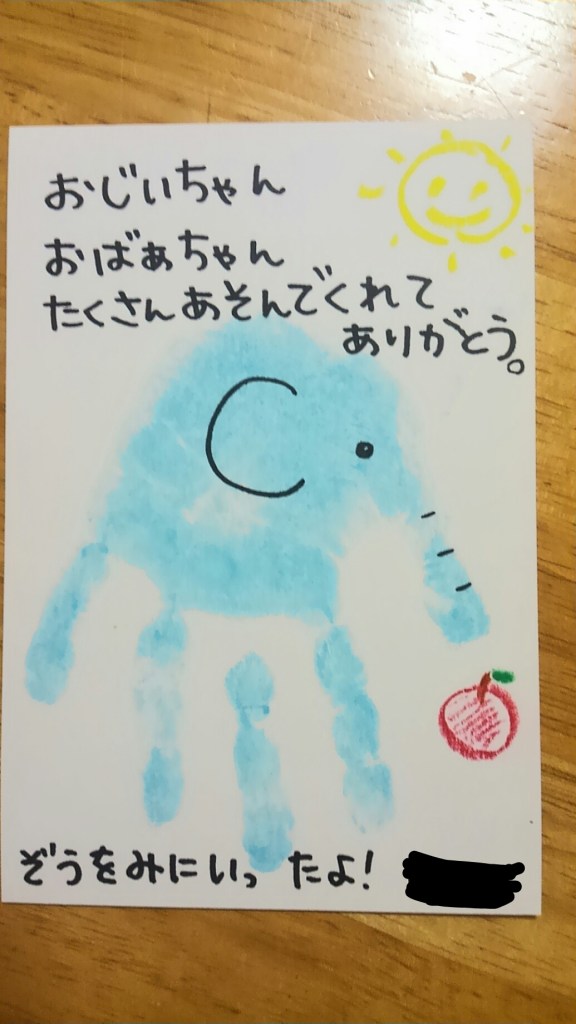 おじいちゃん
おばぁちゃん
たくさんあそんでくれて
ありがとう。
ぞうをみにいったよ!